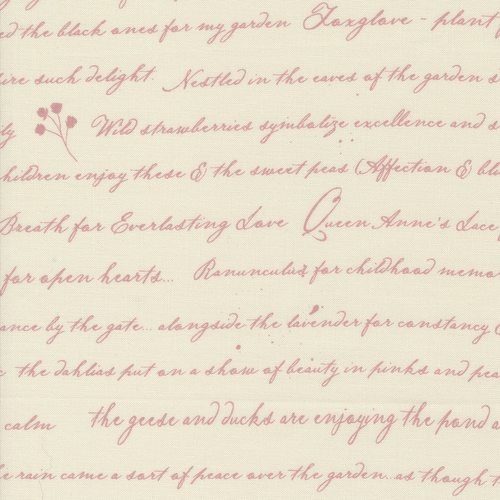 ed the black ones for my garden Foxglove - plant
ire such delight. Nestled in the eaves of the garden s
ly Wild strawberries symbolize excellence and s
hildren enjoy these & the sweet peas (Affection & bl
Breath for Everlasting Love Queen Anne's Lace
for open hearts... Ranunculus for childhood memo
ance by the gate... alongside the lavender for constancy (
the dahlias put on a show of beauty in pinks and pea
calm the geese and ducks are enjoying the pond a
e rain came a sort of peace over the garden...as though t